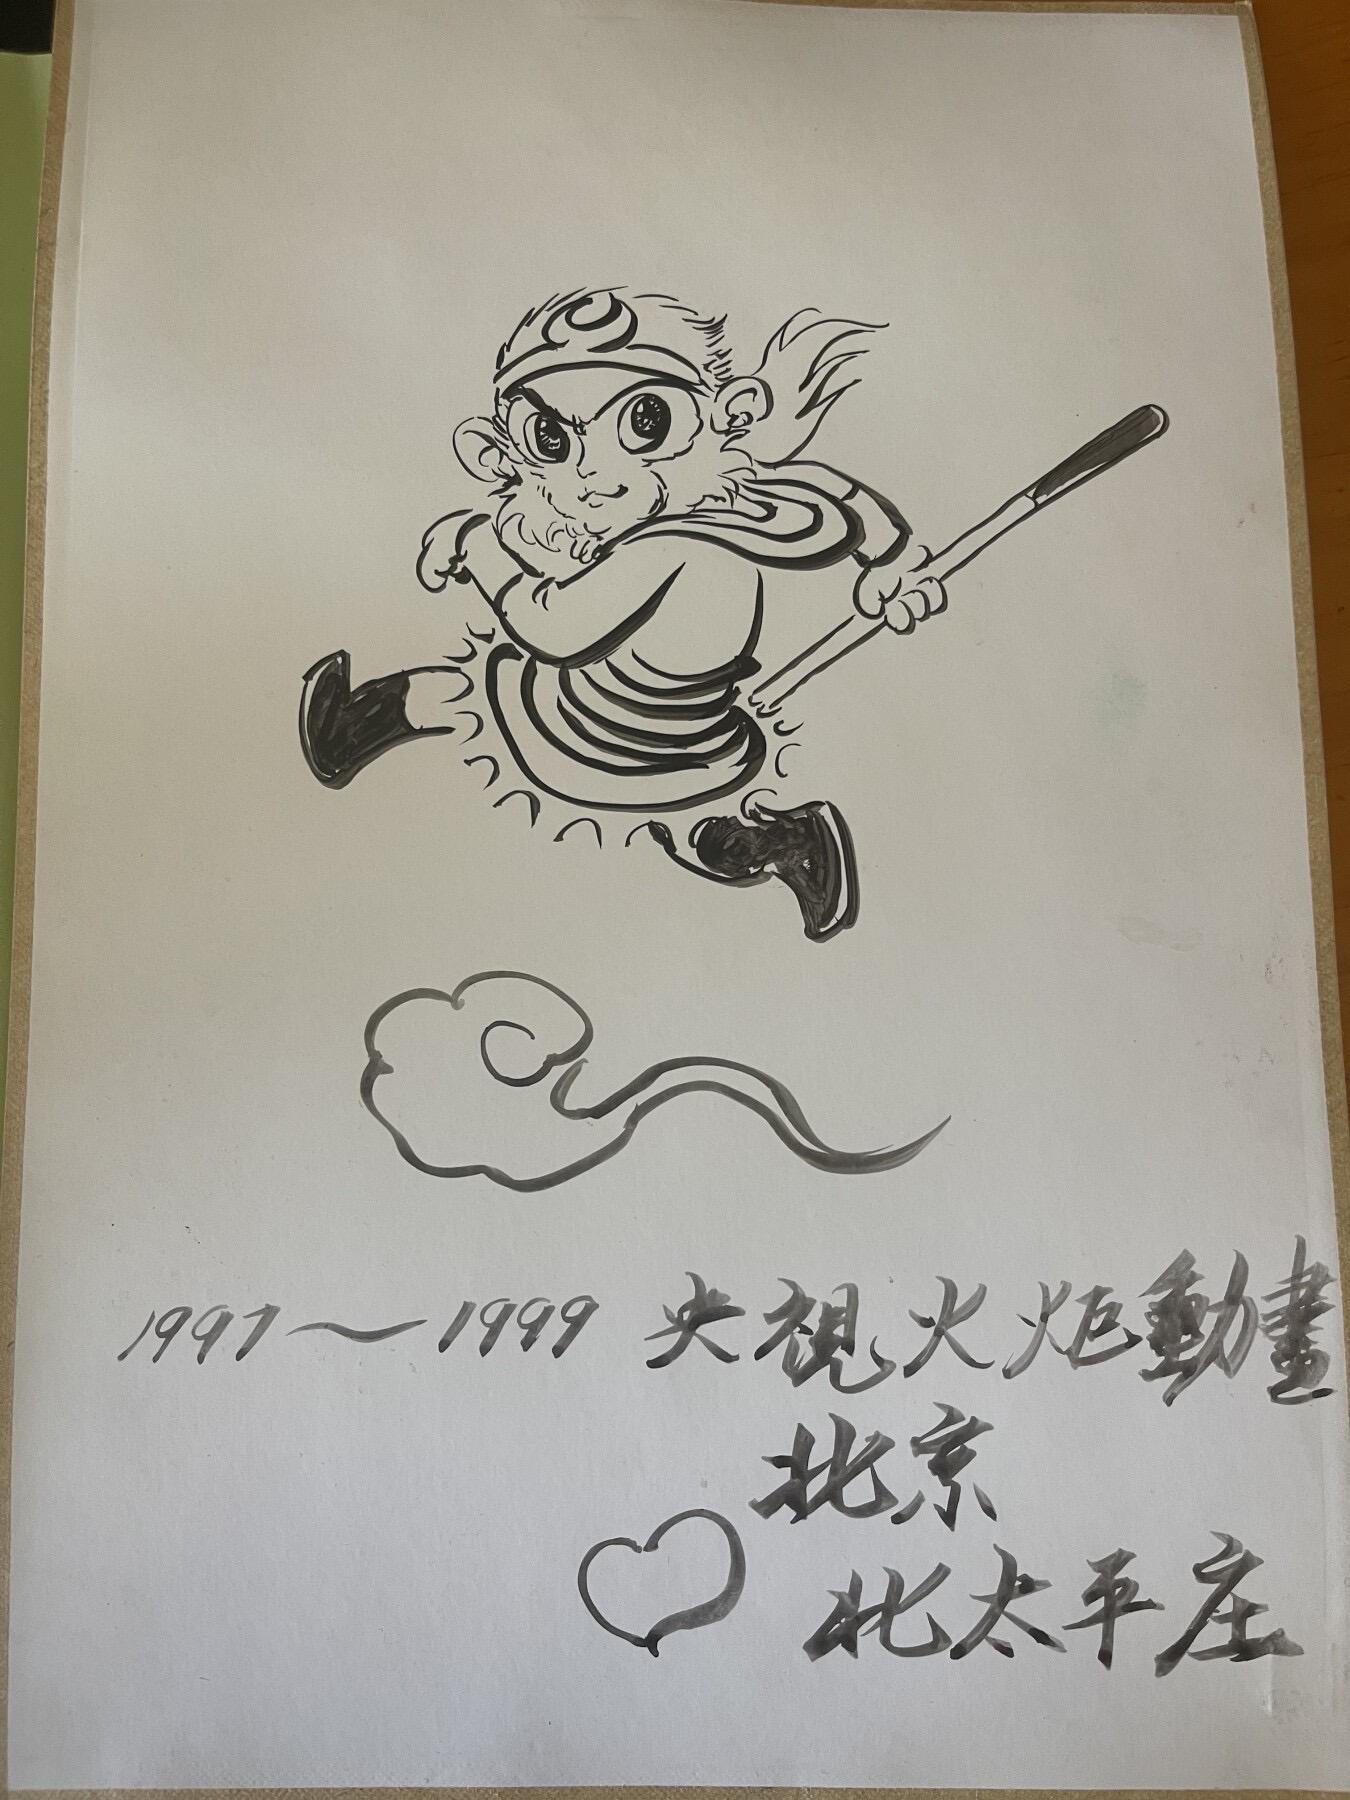 1997～1999 央视火炬動畫
北京
北太平庄